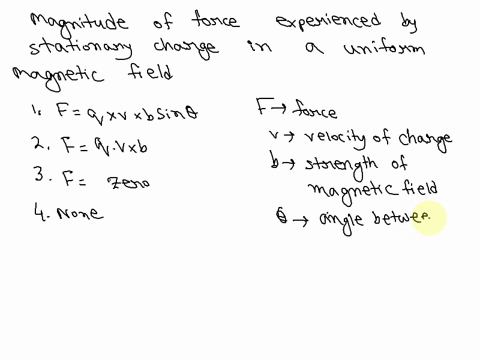 Magnitude of force experienced by
stationary charge in a uniform
magnetic field
1. F = q × v × b sin θ
2. F = q . v × b
3. F = zero
4. None
F → force
v → velocity of charge
b → strength of
magnetic field
θ → angle betwee